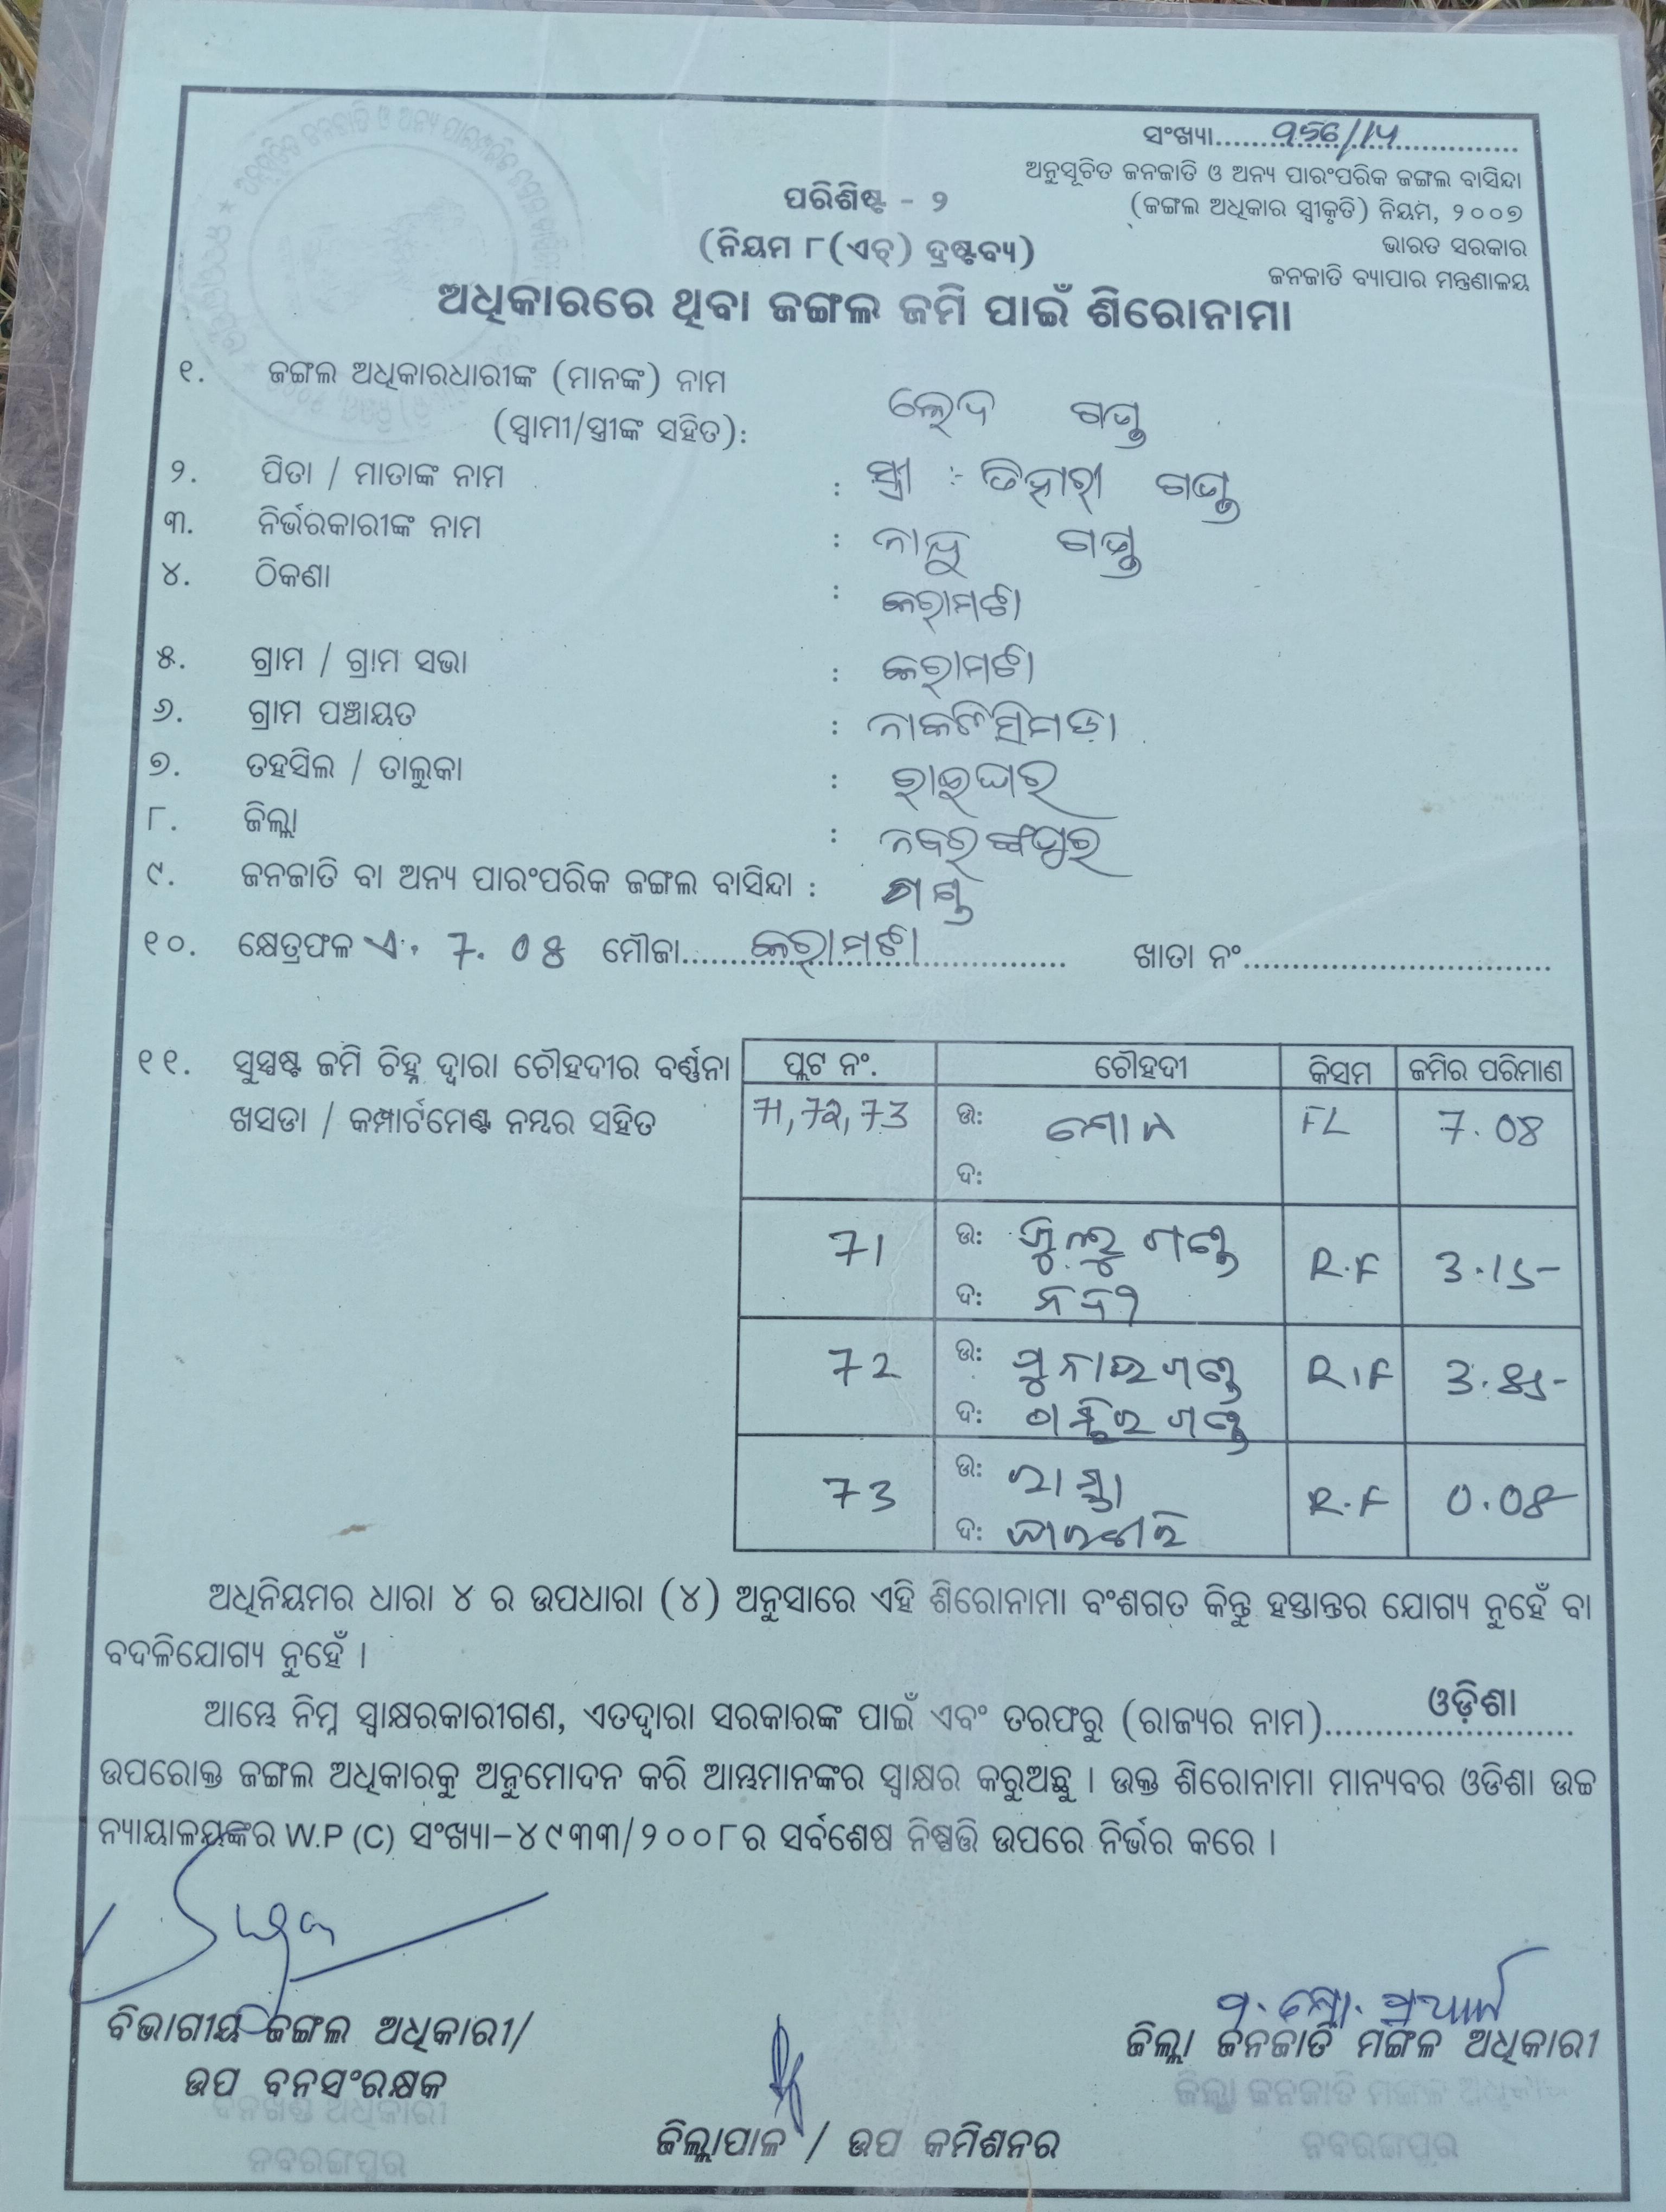 ସଂଖ୍ୟା..............................
ଅନୁସୂଚିତ ଜନଜାତି ଓ ଅନ୍ୟ ପାରଂପରିକ ଜଙ୍ଗଲ ବାସିନ୍ଦା
(ଜଙ୍ଗଲ ଅଧିକାର ସ୍ୱୀକୃତି) ନିୟମ, ୨୦୦୭
ଭାରତ ସରକାର
ଜନଜାତି ବ୍ୟାପାର ମନ୍ତ୍ରଣାଳୟ
ପରିଶିଷ୍ଟ - ୨
(ନିୟମ ୮(ଏଚ୍) ଦ୍ରଷ୍ଟବ୍ୟ)
ଅଧିକାରରେ ଥିବା ଜଙ୍ଗଲ ଜମି ପାଇଁ ଶିରୋନାମା
୧. ଜଙ୍ଗଲ ଅଧିକାରଧାରୀଙ୍କ (ମାନଙ୍କ) ନାମ
(ସ୍ୱାମୀ/ସ୍ତ୍ରୀଙ୍କ ସହିତ): ଗଣ୍ଡ
୨. ପିତା / ମାତାଙ୍କ ନାମ : ସ୍ତ୍ରୀ :- ତିହାରୀ ଗଣ୍ଡ
୩. ନିର୍ଭରକାରୀଙ୍କ ନାମ : ଗଣ୍ଡ
୪. ଠିକଣା : କରାମଟା
୫. ଗ୍ରାମ / ଗ୍ରାମ ସଭା : କରାମଟା
୬. ଗ୍ରାମ ପଞ୍ଚାୟତ : ନାକଟିସିମଡା
୭. ତହସିଲ / ତାଲୁକା : ରାଇଘର
୮. ଜିଲ୍ଲା : ନବରଙ୍ଗପୁର
୯. ଜନଜାତି ବା ଅନ୍ୟ ପାରଂପରିକ ଜଙ୍ଗଲ ବାସିନ୍ଦା : ଗଣ୍ଡ
୧୦. କ୍ଷେତ୍ରଫଳ ଏ. 7.08 ମୌଜା.....କରାମଟା..... ଖାତା ନଂ..............................
୧୧. ସୁସ୍ପଷ୍ଟ ଜମି ଚିହ୍ନ ଦ୍ୱାରା ଚୌହଦୀର ବର୍ଣ୍ଣନା
ଖସଡା / କମ୍ପାର୍ଟମେଣ୍ଟ ନମ୍ବର ସହିତ
ପ୍ଲଟ ନଂ. ଚୌହଦୀ କିସମ ଜମିର ପରିମାଣ
71, 72, 73 ଉ: FL 7.08
ଦ:
71 ଉ: ଗଣ୍ଡ R.F 3.15
ଦ: ନଦୀ
72 ଉ: ସୁନାଇ ଗଣ୍ଡ R.F 3.85
ଦ: ଗଣ୍ଡ
73 ଉ: ରାସ୍ତା R.F 0.08
ଦ:
ଅଧିନିୟମର ଧାରା ୪ ର ଉପଧାରା (୪) ଅନୁସାରେ ଏହି ଶିରୋନାମା ବଂଶଗତ କିନ୍ତୁ ହସ୍ତାନ୍ତର ଯୋଗ୍ୟ ନୁହେଁ ବା
ବଦଳିଯୋଗ୍ୟ ନୁହେଁ ।
ଆମ୍ଭେ ନିମ୍ନ ସ୍ୱାକ୍ଷରକାରୀଗଣ, ଏତଦ୍ୱାରା ସରକାରଙ୍କ ପାଇଁ ଏବଂ ତରଫରୁ (ରାଜ୍ୟର ନାମ).....ଓଡ଼ିଶା.....
ଉପରୋକ୍ତ ଜଙ୍ଗଲ ଅଧିକାରକୁ ଅନୁମୋଦନ କରି ଆମ୍ଭମାନଙ୍କର ସ୍ୱାକ୍ଷର କରୁଅଛୁ । ଉକ୍ତ ଶିରୋନାମା ମାନ୍ୟବର ଓଡିଶା ଉଚ୍ଚ
ନ୍ୟାୟାଳୟଙ୍କର W.P (C) ସଂଖ୍ୟା-୪୯୩୩/୨୦୦୮ର ସର୍ବଶେଷ ନିଷ୍ପତ୍ତି ଉପରେ ନିର୍ଭର କରେ ।
ବିଭାଗୀୟ ଜଙ୍ଗଲ ଅଧିକାରୀ/
ଉପ ବନସଂରକ୍ଷକ
ବନଖଣ୍ଡ ଅଧିକାରୀ
ନବରଙ୍ଗପୁର
ଜିଲ୍ଲାପାଳ / ଉପ କମିଶନର
ଜିଲ୍ଲା ଜନଜାତି ମଙ୍ଗଳ ଅଧିକାରୀ
ଜିଲ୍ଲା ଜନଜାତି ମଙ୍ଗଳ ଅଧିକାରୀ
ନବରଙ୍ଗପୁର